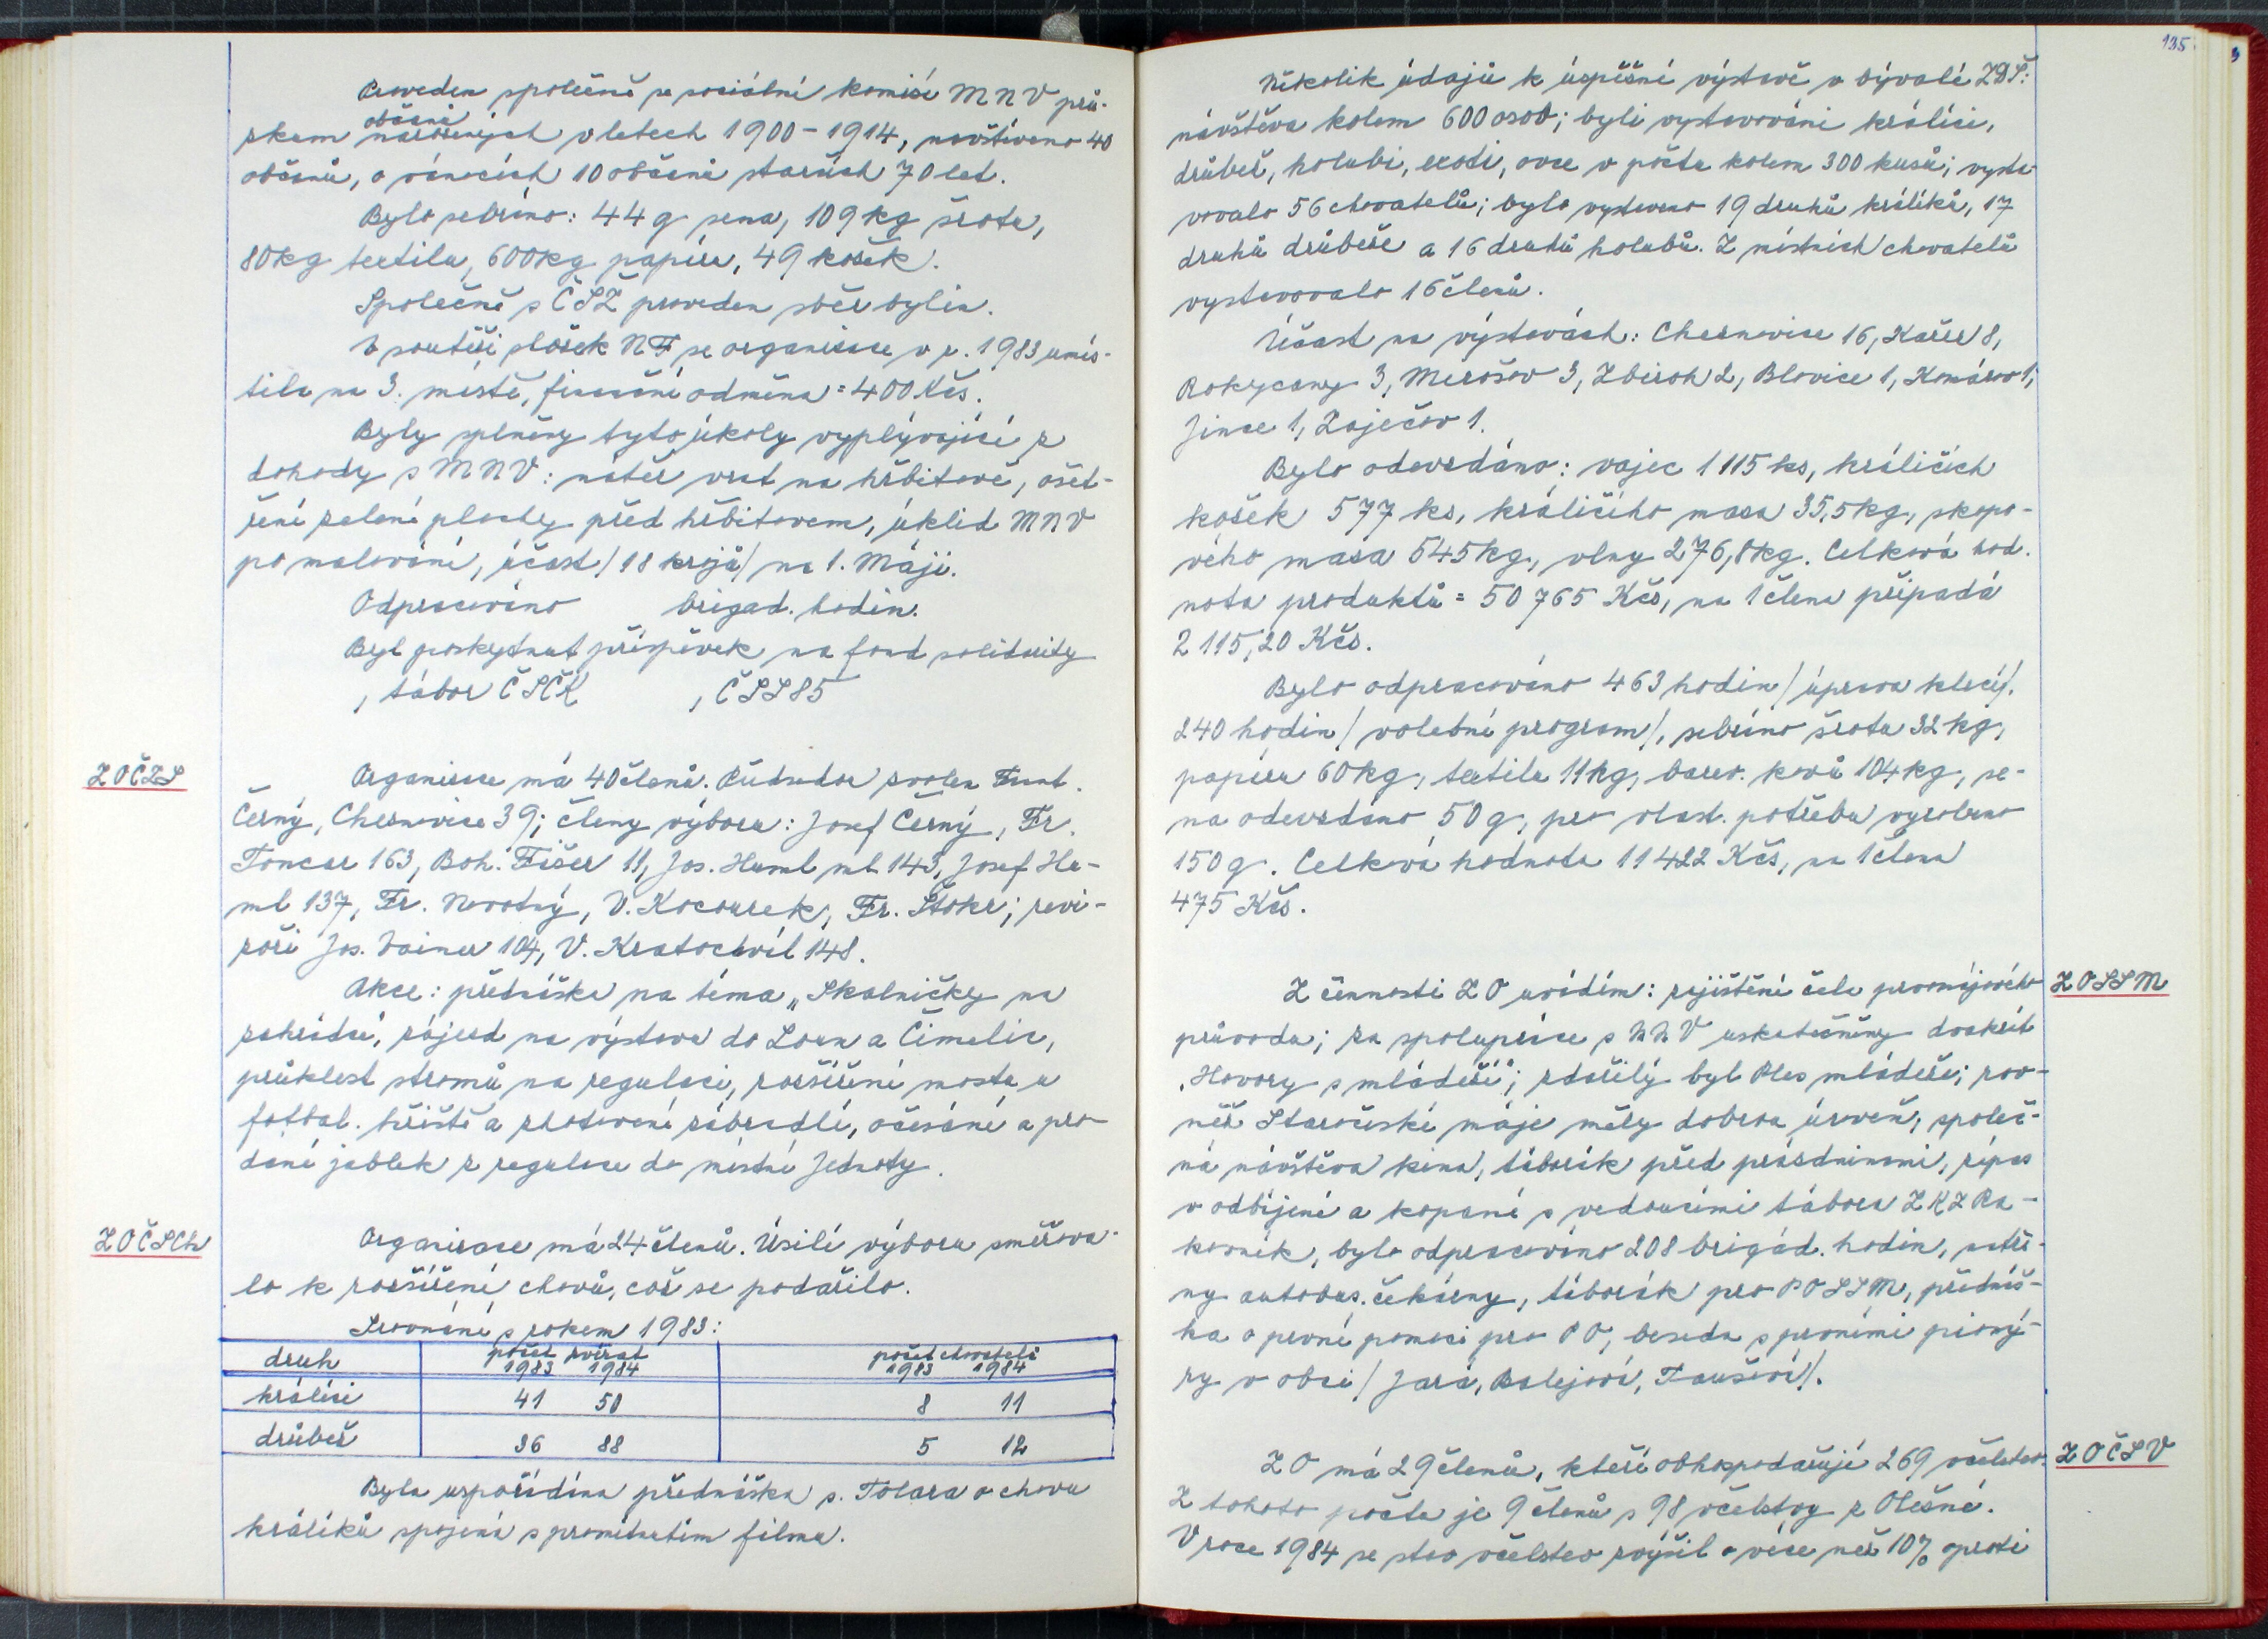 Proveden společně se sociální komisí MNV prů-
zkum občanů narozených v letech 1900-1914, navštíveno 40
občanů, o vánocích 10 občanů starších 70 let.
Bylo sebráno: 44 q sena, 109 kg šrotu,
80 kg textilu, 600 kg papíru, 49 kožek.
Společně s ČSŽ proveden sběr bylin.
V soutěži složek NF se organisace v r. 1983 umís-
tila na 3. místě, finanční odměna = 400 Kčs.
Byly splněny tyto úkoly vyplývající z
dohody s MNV: nátěr vrat na hřbitově, ošet-
ření zelené plochy před hřbitovem, úklid MNV
po malování, účast /18 krojů/ na 1. Máji.
Odpracováno brigad. hodin.
Byl poskytnut příspěvek na fond solidarity
, tábor ČSČK , ČSS85
ZO ČZS
Organisace má 40 členů. Předsedou zvolen Frant.
Černý, Cheznovice 39; členy výboru: Josef Černý, Fr.
Toncar 163, Boh. Fišer 11, Jos. Huml ml. 143, Josef Hu-
ml 137, Fr. Novotný, V. Kocourek, Fr. Štokr; revi-
zoři Jos. Vainer 104, V. Kratochvíl 148.
Akce: přednáška na téma „Skalničky na
zahrádce", zájezd na výstavu do Loun a Čimelic,
průklest stromů na regulaci, rozšíření mostu u
fotbal. hřiště a zhotovení zábradlí, očesání a pro-
dání jablek z regulace do místní Jednoty.
ZO ČSCh
Organizace má 24 členů. Úsilí výboru směřova-
lo k rozšíření chovů, což se podařilo.
Srovnání s rokem 1983:
druh počet zvířat počet chovatelů
1983 1984 1983 1984
králíci 41 50 8 11
drůbež 36 88 5 12
Byla uspořádána přednáška s. Tolara o chovu
králíků spojená s promítnutím filmu.
135
Několik údajů k úspěšné výstavě v bývalé ZDŠ:
návštěva kolem 600 osob; byli vystavováni králíci,
drůbež, holubi, exoti, ovce v počtu kolem 300 kusů; vysta-
vovalo 56 chovatelů; bylo vystaveno 19 druhů králíků, 17
druhů drůbeže a 16 druhů holubů. Z místních chovatelů
vystavovalo 16 členů.
Účast na výstavách: Cheznovice 16, Kařez 8,
Rokycany 3, Mirošov 3, Zbiroh 2, Blovice 1, Komárov 1,
Jince 1, Zaječov 1.
Bylo odevzdáno: vajec 1115 ks, králičích
kožek 577 ks, králičího masa 35,5 kg, skopo-
vého masa 545 kg, vlny 276,8 kg. Celková hod-
nota produktů = 50 765 Kčs, na 1 člena připadá
2 115,20 Kčs.
Bylo odpracováno 463 hodin /úprava klecí/,
240 hodin /volební program/, sebráno šrotu 32 kg,
papíru 60 kg, textilu 11 kg, barev. kovů 104 kg, se-
na odevzdáno 50 q, pro vlast. potřebu vyrobeno
150 q. Celková hodnota 11 422 Kčs, na 1 člena
475 Kčs.
ZO SSM
Z činnosti ZO uvádím: zajištění čela prvomájového
průvodu; za spolupráce s MNV uskutečněny dvakrát
„Hovory s mládeží"; zdařilý byl Ples mládeže; rov-
něž Staročeské máje měly dobrou úroveň, společ-
ná návštěva kina, táborák před prázdninami, zápas
v odbíjené a kopané s vedoucími tábora ZKZ Ra-
kovník, bylo odpracováno 208 brigád. hodin, natře-
ny autobus. čekárny, táborák pro PO SSM, přednáš-
ka o první pomoci pro PO, beseda s prvními pioný-
ry v obci /Jará, Balejová, Taušová/.
ZO ČSV
ZO má 29 členů, kteří obhospodařují 269 včelstev.
Z tohoto počtu je 9 členů s 98 včelstvy z Olešné.
V roce 1984 se stav včelstev zvýšil o více než 10% oproti